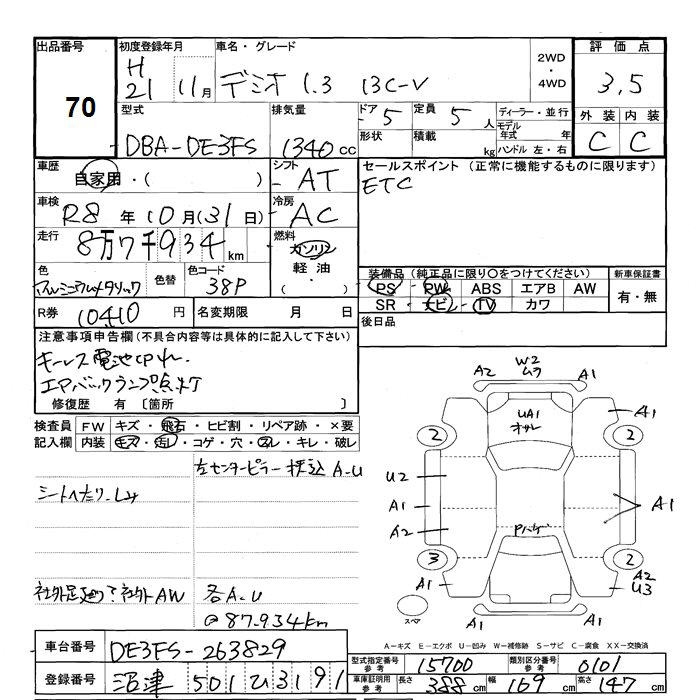 出品番号 初度登録年月 車名・グレード 2WD ・ 4WD 評価点
70 H21 11月 デミオ 1.3 13C-V 3,5
型式 排気量 ドア 定員 ディーラー・並行 外装 内装
DBA-DE3FS 1340cc 5 5人 モデル年式 年 C C
形状 積載 kg ハンドル 左・右
車歴 自家用・( ) シフト AT セールスポイント (正常に機能するものに限ります)
ETC
車検 R8年10月(31日) 冷房 AC
走行 8万7千934km 燃料 ガソリン 軽油・( )
色 アルミニウムメタリック 色替 色コード 38P
装備品 (純正品に限り〇をつけてください) 新車保証書
PS PW ABS エアB AW 有・無
SR ナビ TV カワ
R券 10410円 名変期限 月 日 後日品
注意事項申告欄 (不具合内容等は具体的に記入して下さい)
キーレス電池切れ.
エアバックランプ点灯
修復歴 有 〔箇所 〕
検査員 FW キズ・飛石・ヒビ割・リペア跡・×要
記入欄 内装 キズ・汚レ・コゲ・穴・スレ・キレ・破レ
左センターピラー 押込 A-U
シートへたり.シミ
社外AW 各A.U
@87.934km
W2
A2 A1
UA1
A1
2 2
U2
A1 A1
A2
3 2
A1 A2
U3
A1 A1
スペア
A-キズ E-エクボ U-凹み W-補修跡 S-サビ C-腐食 XX-交換済
車台番号 DE3FS-263829
登録番号 沼津 501 ひ 3191
型式指定番号 参考 15700 類別区分番号 参考 0101
車庫証明用 参考 長さ 388cm 幅 169cm 高さ 147cm